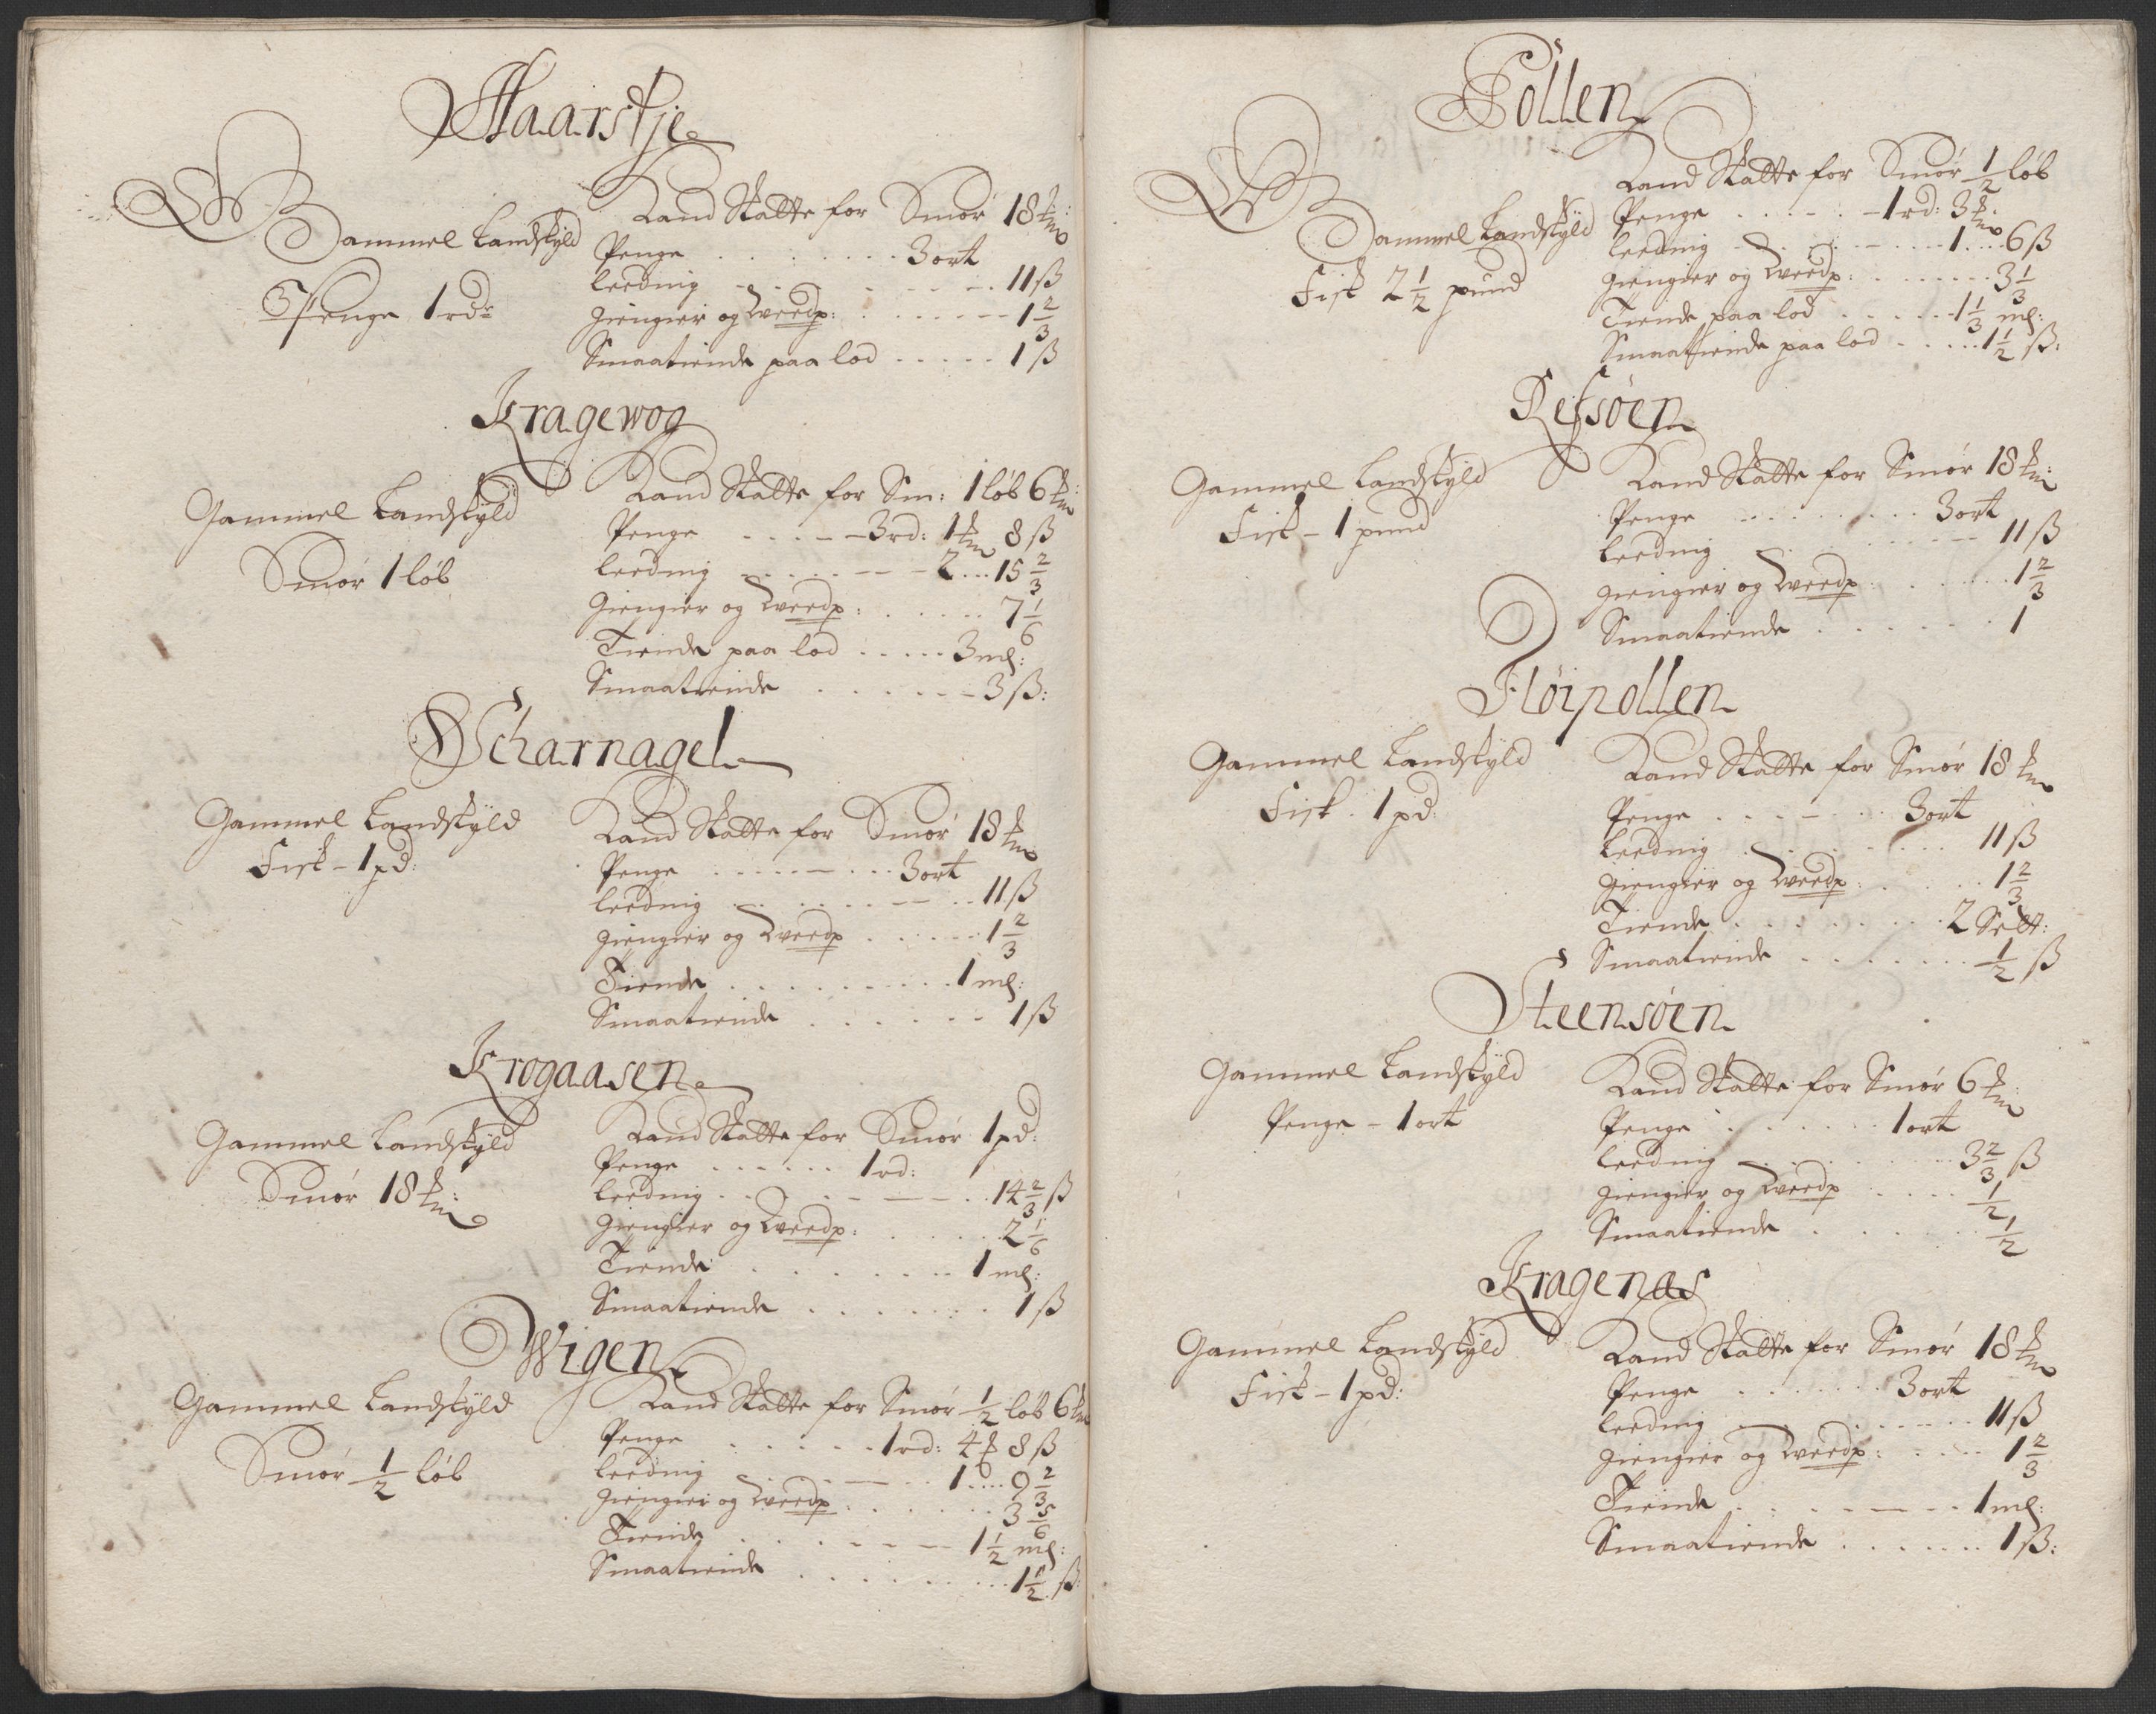 Haarstje
Gammel Landskÿld
Penge 1 rdr
Land Skatte for Smör 18 ℔m:
Penge . . . . . . . . 3 ort
Leeding - . . . . - - . 11 ß
Giengier og Dverdp: . . . . . - - - 1 2/3
Smaatiende paa lod . . . . . 1 ß
Kragewog
Gammel Landskÿld
Smör 1 löb
Land Skatte for Sm: 1 löb 6 ℔m:
Penge . . . . - - 3 rd: 1 ℔m 8 ß
Leeding - . . . . - - - 2 ... 15 2/3
Giengier og Dverdp: . . . . . . 7 1/6
Tiende paa lod . . . . . 3 mel:
Smaatiende . . . . . - - 3 ß:
Scharnagel
Gammel Landskÿld
Fisk - 1 pd:
Land Skatte for Smör 18 ℔m
Penge . . . . . - . . . 3 ort
Leeding . . . . . . - - . . 11 ß
Giengier og Dverdp . . . . . . 1 2/3
Tiende . . . . . . . . . . 1 mel:
Smaatiende . . . . . - - 1 ß
Krogaasen
Gammel Landskÿld
Smör 18 ℔m:
Land Skatte for Smör 1 pd:
Penge . . . . . . 1 rd:
Leeding . . . . - - - . . 14 2/3 ß
Giengier og Dverdp: . . . . . . 2 1/6
Tiende . . . . . . . . . 1 mel:
Smaatiende . . . . . . . 1 ß
Wigen
Gammel Landskÿld
Smör 1/2 löb
Land Skatte for Smör 1/2 löb 6 ℔m
Penge . . . . . . 1 rd: 4 ℔ 8 ß
Leeding . . . . - - . . 1 .... 9 2/3
Giengier og Dverdp . . . . . . . 3 5/6
Tiende . . . . . . - - - 1 1/2 mel:
Smaatiende . . . . . . . . . . 1 1/2 ß:
Pollen
Gammel Landskÿld
Fisk 2 1/2 pund
Land Skatte for Smör 1/2 löb
Penge . . . . - . - 1 rd: 3 ℔m
Leeding - . . . . - . . . . 1 .... 6 ß
Giengier og Dverdp: . . . . . . . . 3 1/3
Tiende paa lod . . . . . 1 1/3 mel:
Smaatiende paa lod . . . . . 1 1/2 ß:
Refsöen
Gammel Landskÿld
Fisk - 1 pund
Land Skatte for Smör 18 ℔m:
Penge . . . . . . . . 3 ort
Leeding . . . . . - - - 11 ß
Giengier og Dverdp . . . . . . . 1 2/3
Smaatiende . . . . . - . 1
Flöipollen
Gammel Landskÿld
Fisk . 1 pd:
Land Skatte for Smör 18 ℔m
Penge . . . . - . . 3 ort
Leeding . . . . . . . . . 11 ß
Giengier og Dverdp . . . . . 1 2/3
Tiende . . . . . . . . . 2 Sett:
Smaatiende . . . . . . . . 1/2 ß
Steensöen
Gammel Landskÿld
Penge - 1 ort
Land Skatte for Smör 6 ℔m:
Penge . . . . . . . 1 ort
Leeding - . . . . . . . . 3 2/3 ß
Giengier og Dverdp . . . . 1/2
Smaatiende . . . . . . 1/2
Kragenæs
Gammel Landskÿld
Fisk - 1 pd:
Land Skatte for Smör 18 ℔m
Penge . . . . . . . 3 ort
Leeding - . . . . . . . . . 11 ß
Giengier og Dverdp: . . . . . 1 2/3
Tiende . . . . . - - - . 1 mel:
Smaatiende . . . . . . . 1 ß: